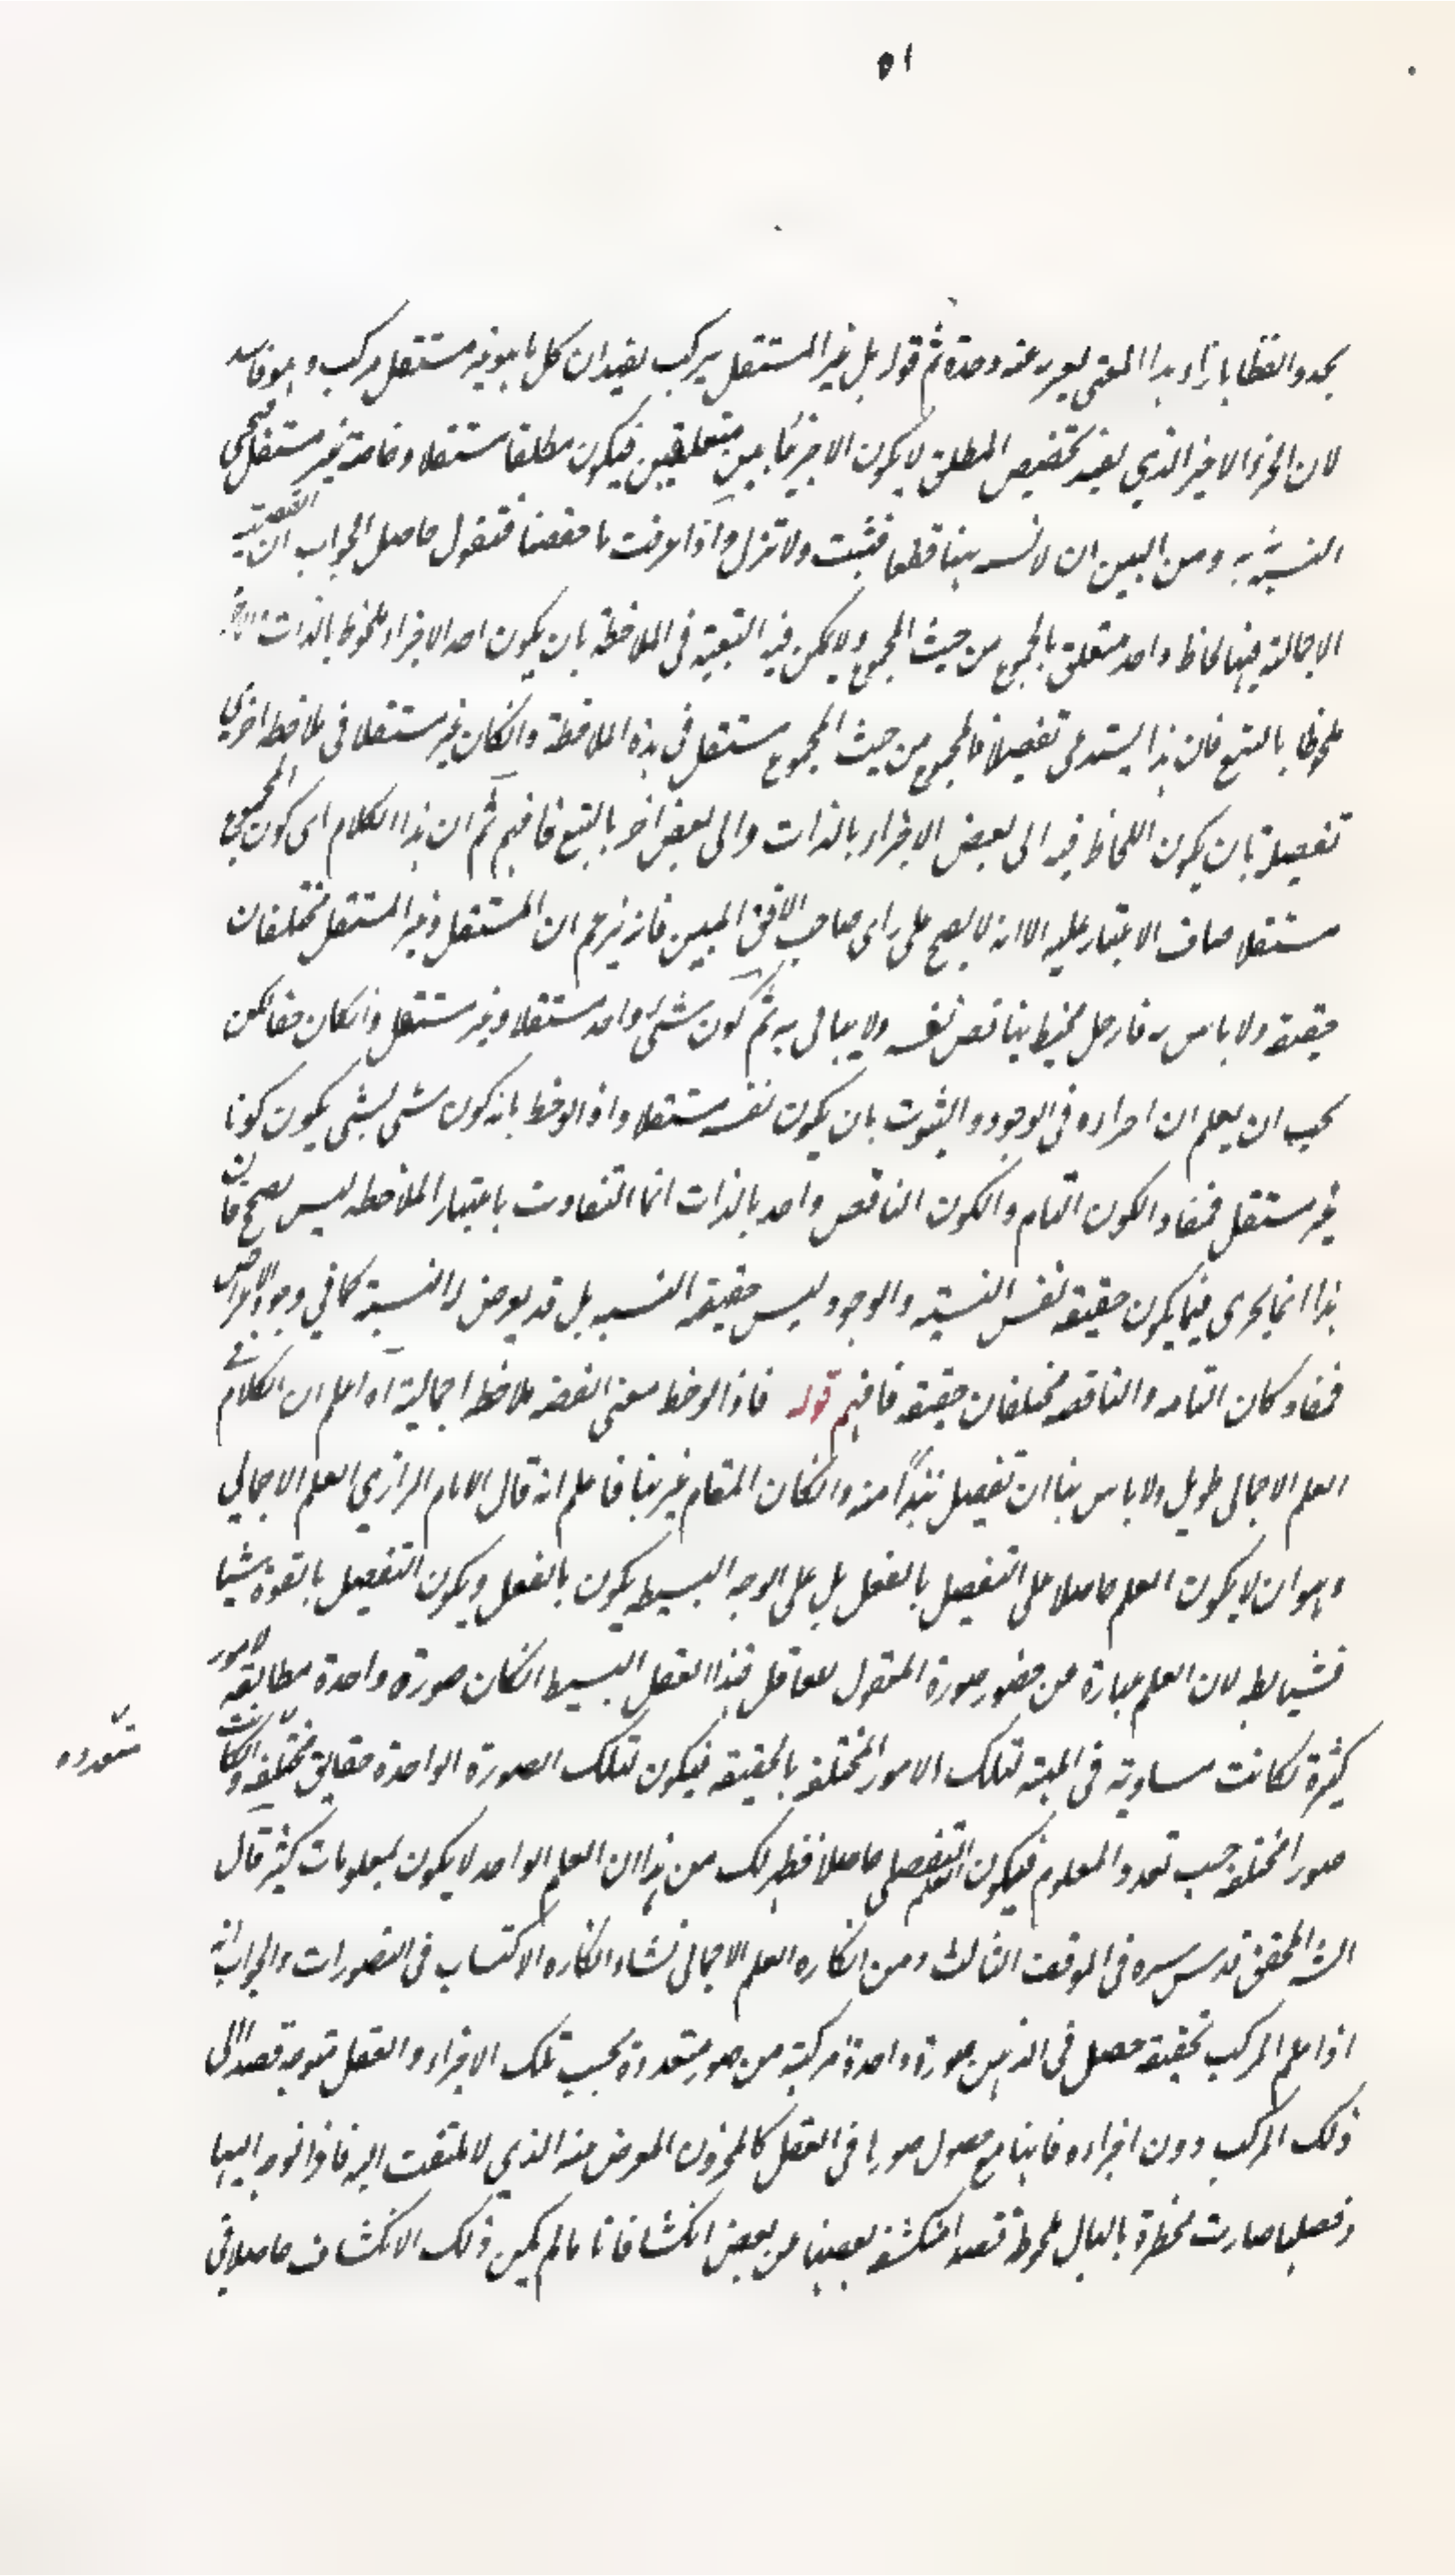 ٥١
يجدوا لفظا بازاء هذا المعنى يعبر به عنه وحدة ثم قوله بل غير المستقل يركب يفيد ان كل ما هو غير مستقل مركب وهو فاسد
لان الجزء الاخير الذي يفيد تخصيص المطلق لا يكون الا جزئيا بين متعلقين فيكون مطلقا مستقلا وخاصة غير مستقل فهي
النسبية ومن البين ان لا نسبة هنا قطعا فتثبت ولا تزل واذا عرفت ما حققنا فنقول حاصل الجواب ان القضية
الاجمالية فيها لحاظ واحد متعلق بالمجموع من حيث المجموع ولا يمكن فيه التبعية في الملاحظة بان يكون احد الاجزاء ملحوظا بالذات والاخر
ملحوظا بالتبع فان هذا يستدعى تفصيلا فالمجموع من حيث المجموع مستقل في هذه الملاحظة وانكان غير مستقلا في ملاحظة اخرى
تفصيلية بان يكون اللحاظ فيه الى بعض الاجزاء بالذات والى بعض اخر بالتبع فافهم ثم ان هذا الكلام اى كون المجموع
مستقلا صاف لا غبار عليه الا انه لا يصح على راى صاحب الافق المبين فانه يزعم ان المستقل وغير المستقل مختلفان
حقيقة ولا باس به فا رجل يناقض نفسه ولا يبالى به ثم كون شئ واحد مستقلا وغير مستقل وانكان حقا لكن
يجب ان يعلم ان اجراءه في الوجود والثبوت بان يكون نفسه مستقلا واذا لوحظ بانه كون شئ لشئ يكون كونا
غير مستقل فمفاد الكون التام والكون الناقص واحد بالذات انما التفاوت باعتبار الملاحظه ليس بصحيح فان
هذا انما يجرى فيما يكون حقيقة نفس النسبة والوجود ليس حقيقة النسبه بل قد يعرض له النسبة كما في وجود الاعراض
فمفاد كان التامه والناقصه مختلفان حقيقة فافهم قوله فاذا لوحظ معنى القضه ملاحظة اجمالية اه اعلم ان الكلام في
العلم الاجمالى طويل ولا باس بنا ان تفصيل نبذًا منه وانكان المقام غريبا فاعلم انه قال الامام الرازي العلم الاجمالي
وهو ان لا يكون العلم حاصلا على التفصيل بالفعل بل على الوجه البسيط يكون بالفعل ويكون التفصيل بالقوة شيئا
فشيئا باطل لان العلم عبارة عن حضور صورة المعقول للعاقل فهذا العقل البسيط انكان صورة واحدة مطابقة لامور
كثيرة لكانت مساوية في المهية لتلك الامور المختلفة بالحقيقة فيكون لتلك الصورة الواحدة حقايق مختلفة وانكانت
متعدده
صورا مختلفة حسب تعدد المعلوم فيكون العلم التفصيلى حاصلا فظهر لك من هذا ان العلم الواحد لا يكون بمعلومات كثيرة قال
الش المحقق قدس سره في الموقف الثالث ومن انكاره العلم الاجمالى نشاء انكاره الاكتساب في التصورات والجواب انه
اذا علم المركب بحقيقته حصل في الذهن صورة واحدة مركبة من صور متعددة بحسب تلك الاجزاء والعقل متوجه قصدا الى
ذلك المركب دون اجزاءه فانها مع حصول صورها في العقل كالمخزون المعرض عنه الذي لا يلتفت اليه فاذا توجه اليها
وفصلها صارت مخطرة بالبال ملحوظة قصدا منكشفة بعضها عن بعض انكشافا تاما لم يكن ذلك الانكشاف حاصلا في